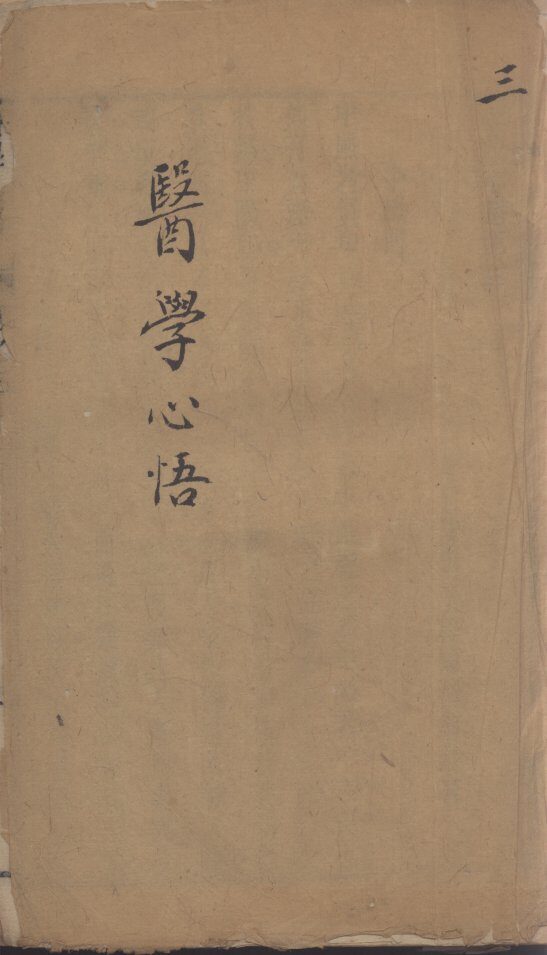 三
醫學心悟